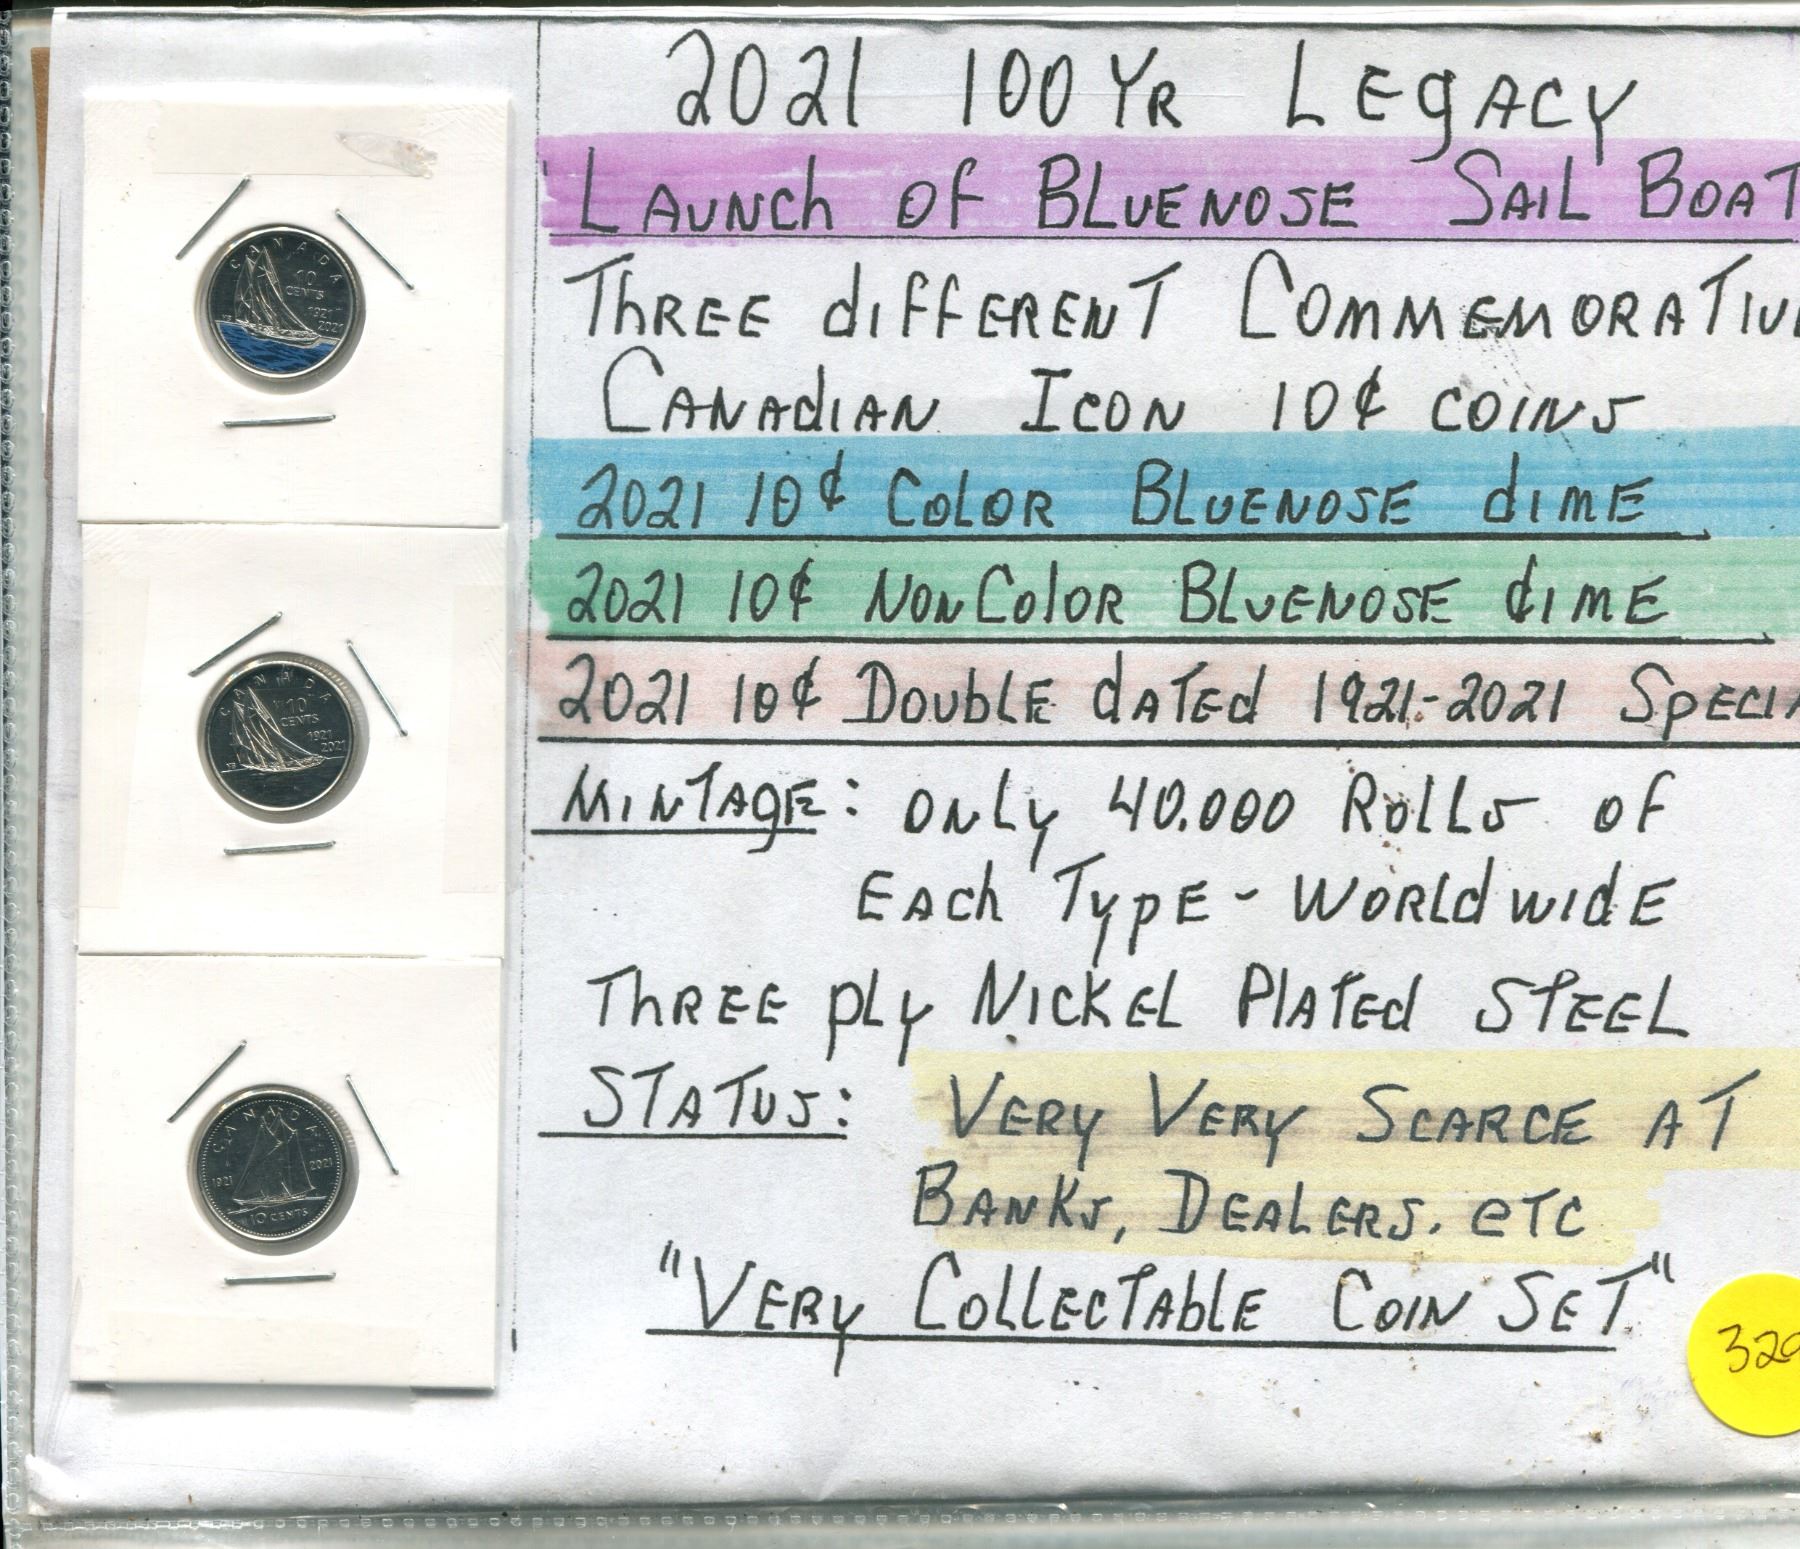 2021 100 YR LEGACY
LAUNCh OF BLUENOSE SAIL BOAT
ThREE diFFERENT COMMEMORATIV
CANAdIAN ICON 10¢ COINS
2021 10¢ COLOR BLUENOSE dIME
2021 10¢ NONCOlOR BLUENOSE dIME
2021 10¢ DOUBLE dATEd 1921-2021 SPECIA
MINTAGE: ONLY 40.000 ROLLS OF
EACh TYPE - WORLdWIdE
ThREE PLY NICKEL PlATEd STEEL
STATUS: VERY VERY SCARCE AT
BANKS, DEALERS. eTC
"VERY COLLECTABLE COIN SET"
320
CANADA
10
CENTS
1921
2021
CANADA
10
CENTS
1921
2021
CANADA
1921
2021
10 CENTS